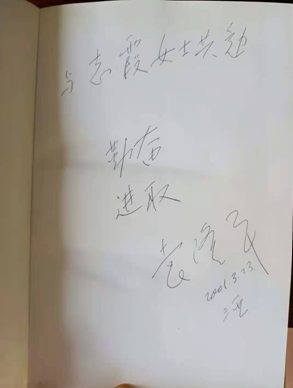 与志霞女士共勉
勤奋
进取
袁隆平
2001.3.23.
三亚